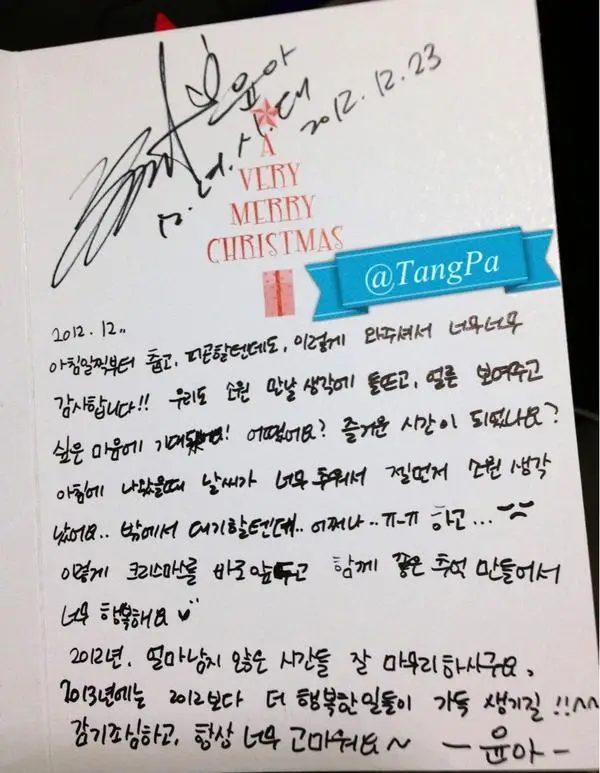 윤아
소.녀.시.대
2012.12.23
A
VERY
MERRY
CHRISTMAS
@TangPa
2012.12..
아침일찍부터 춥고, 피곤할텐데도, 이렇게 와주셔서 너무너무
감사합니다!! 우리도 소원 만날 생각에 들뜨고, 얼른 보여주고
싶은 마음에 기대! 어땠어요? 즐거운 시간이 되었나요?
아침에 나왔을때 날씨가 너무 추워서 젤먼저 소원 생각
났어요.. 밖에서 대기할텐데.. 어쩌나..ㅠ-ㅠ 하고...
이렇게 크리스마스를 바로 앞두고 함께 좋은 추억 만들어서
너무 행복해요
2012년, 얼마남지 않은 시간들 잘 마무리하시구요,
2013년에는 2012보다 더 행복한일들이 가득 생기길!!^^
감기조심하고, 항상 너무 고마워요~ -윤아-